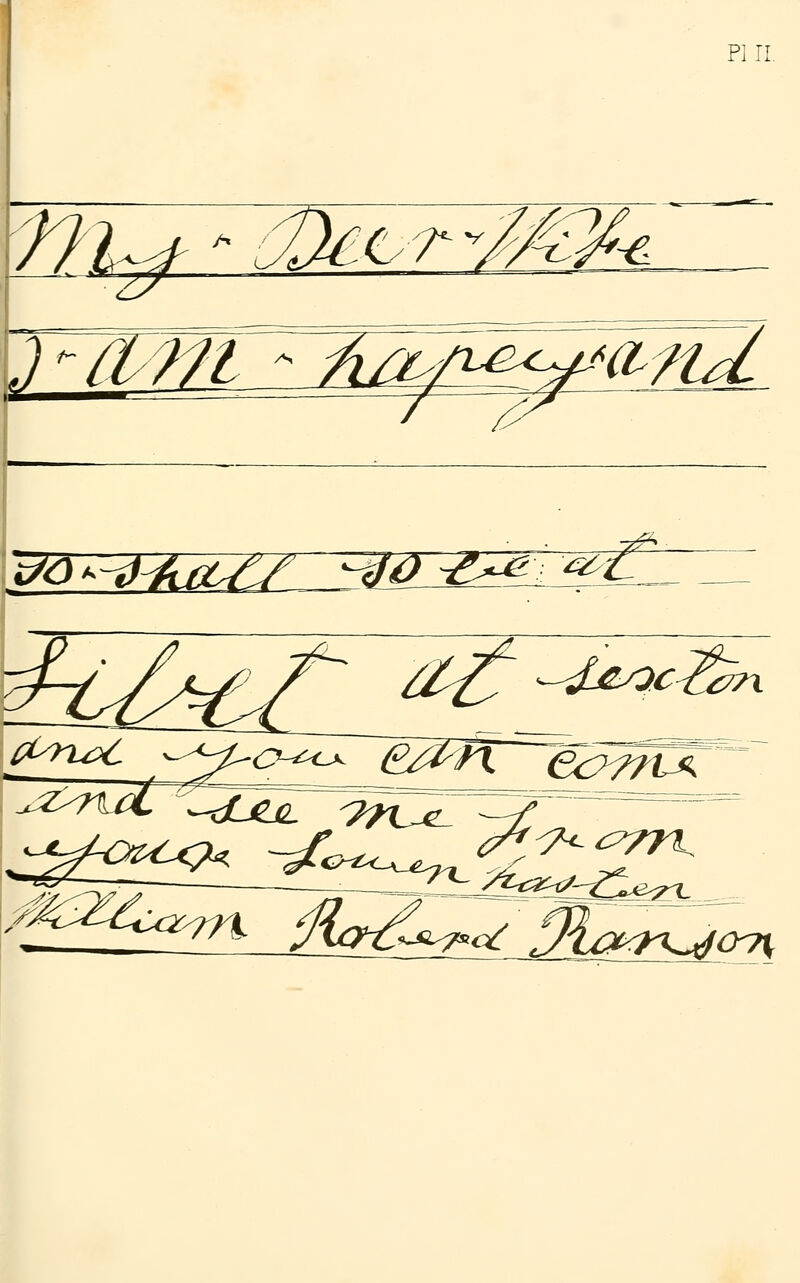 Pl II.
My Deer Wife
I am hapey and
so shall so be at
Silvet at sexton
and you can come
and see me from
youre souen hasten
William Roberd Ranson